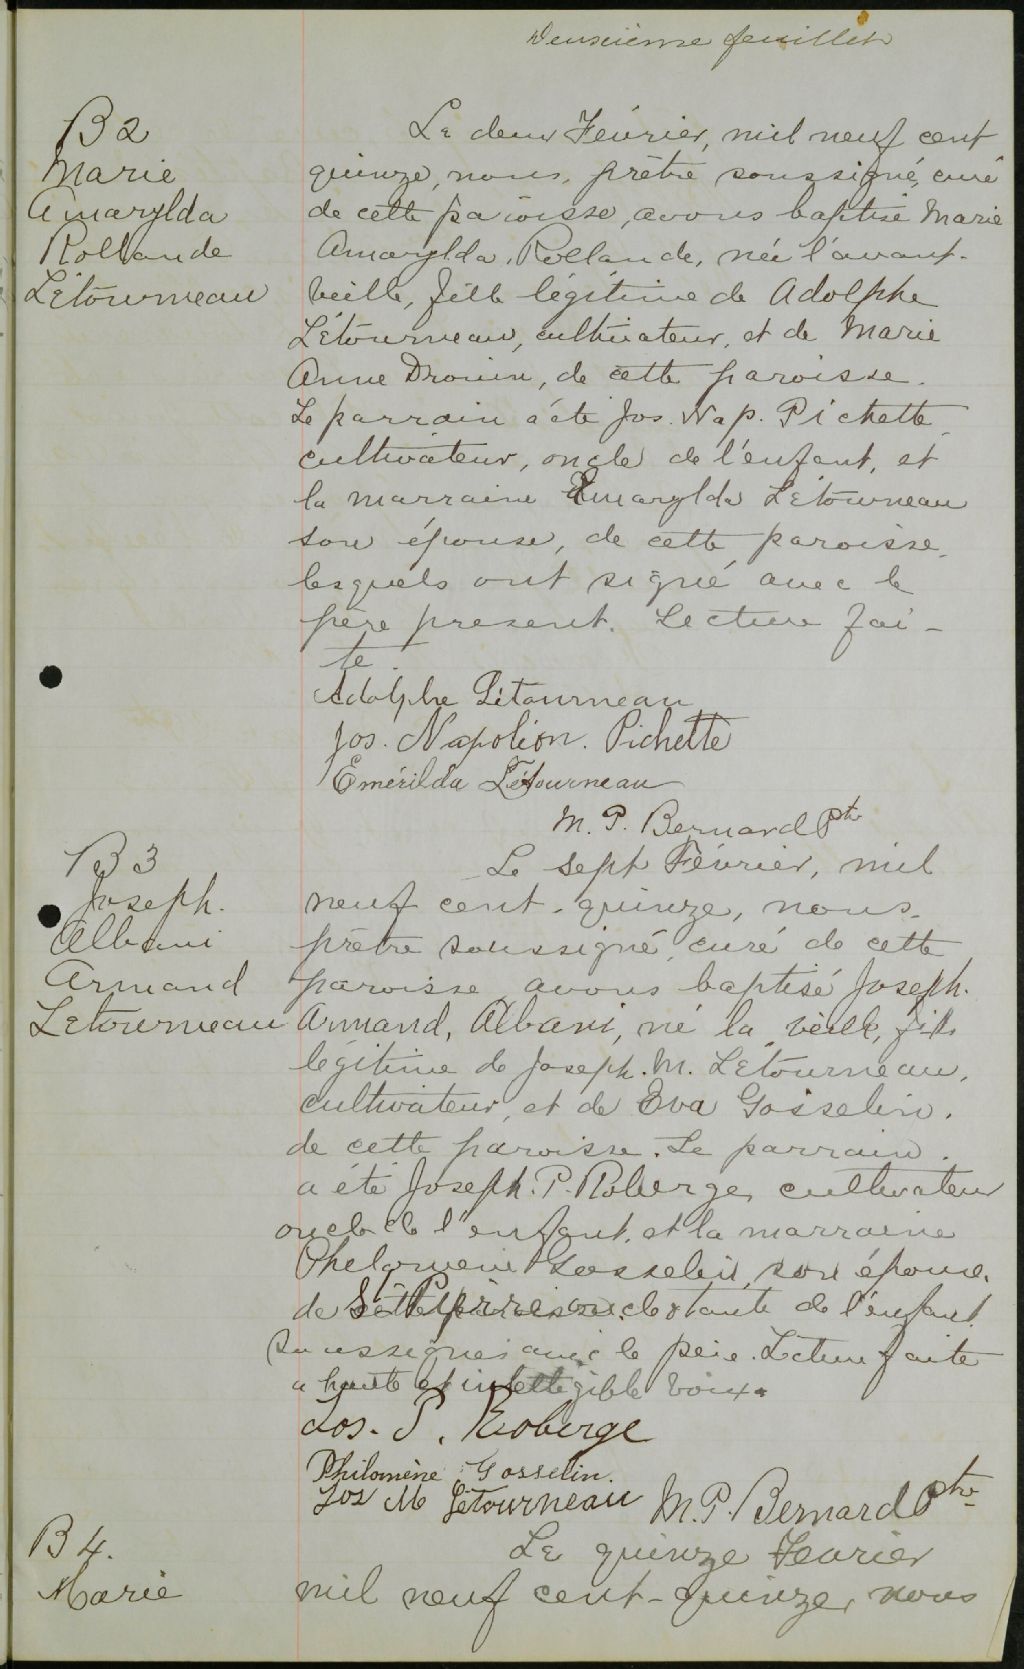 Deuxième feuillet
B 2
Marie
Amarylda
Rollande
Létourneau
Le deux Février, mil neuf cent
quinze, nous, prêtre soussigné, curé
de cette paroisse, avons baptisé Marie
Amarylda, Rollande, née l'avant-
veille, fille légitime de Adolphe
Létourneau, cultivateur, et de Marie
Anne Drouin, de cette paroisse.
Le parrain a été Jos. Nap. Pichette
cultivateur, oncle de l'enfant, et
la marraine Emarylda Létourneau
son épouse, de cette paroisse,
lesquels ont signé avec le
père present. Lecture fai-
te.
Adolphe Létourneau
Jos. Napoléon. Pichette
Emérilda Létourneau
M. P. Bernard Ptr
B 3
Joseph.
Albani
Armand
Letourneau
Le sept Février, mil
neuf cent-quinze, nous,
prêtre soussigné, curé de cette
paroisse avons baptisé Joseph.
Armand, Albani, né la veille, fils
légitime de Joseph. M. Létourneau,
cultivateur, et de Eva Gosselin.
de cette paroisse. Le parrain.
a été Joseph. P. Roberge, cultivateur
oncle de l'enfant, et la marraine
Phelomene Gosselin, son épouse,
de St Pierre tante de l'enfant
soussignés avec le père. Lecture faite
a haute et intelligible voix.
Jos. P. Roberge
Philomène Gosselin.
Jos M Létourneau M. P. Bernard Ptre
B 4.
Marie
Le quinze Fevrier
mil neuf cent-quinze, nous